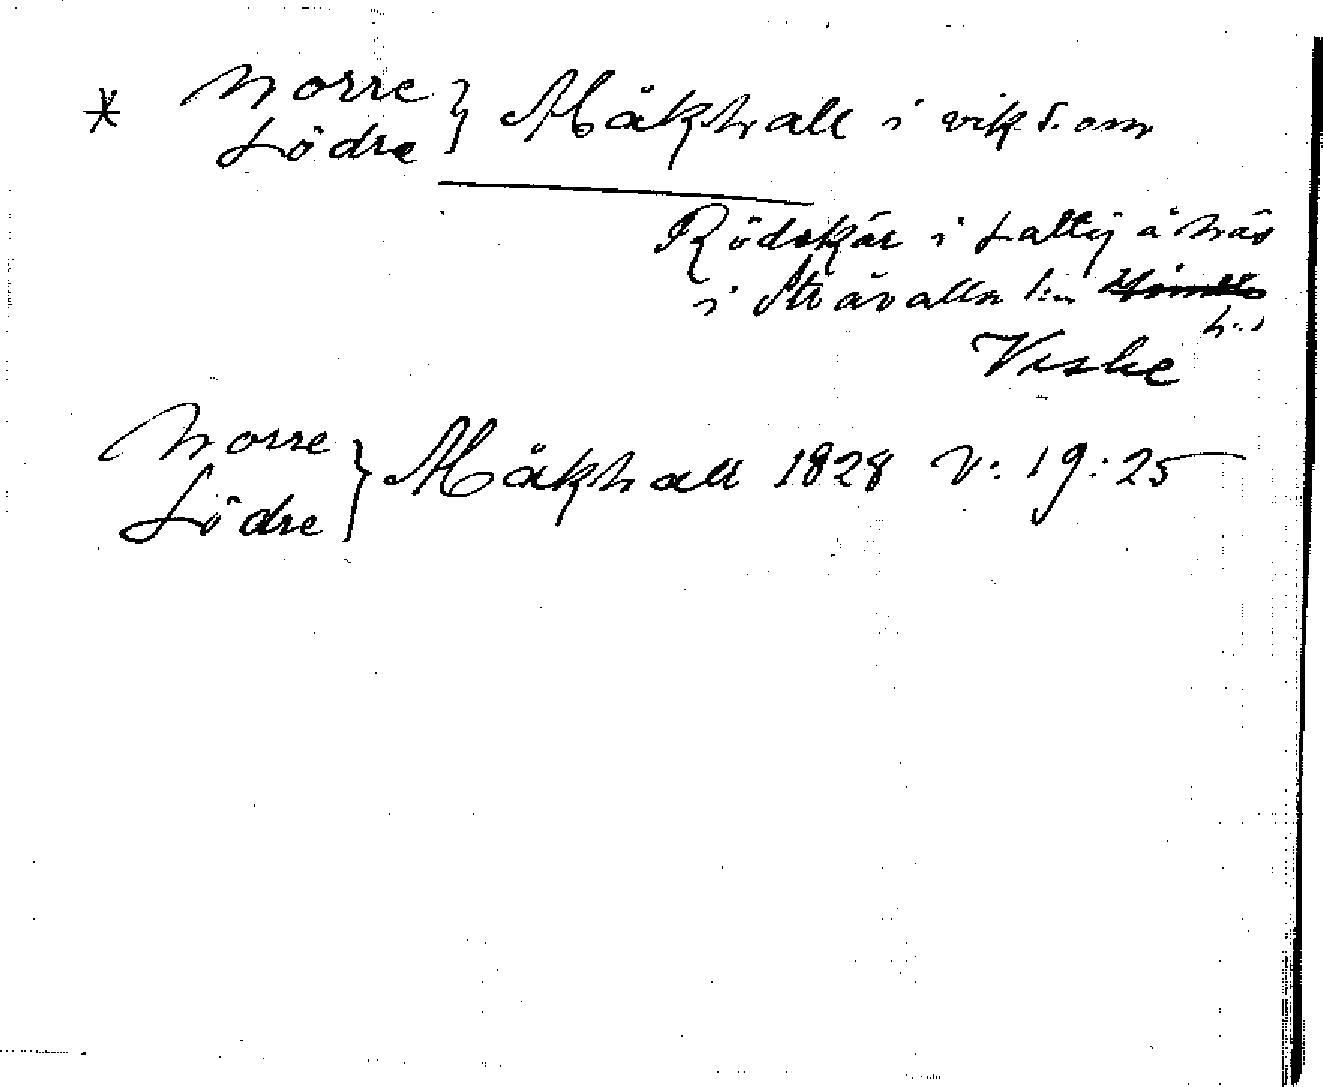 * Norre
Södre } Måkhall i vik S. om
Rödskär i Lalty å näs
i Strävalla sn Himle
h:d
Viske
Norre
Södre } Måkhall 1828 V: 19:25